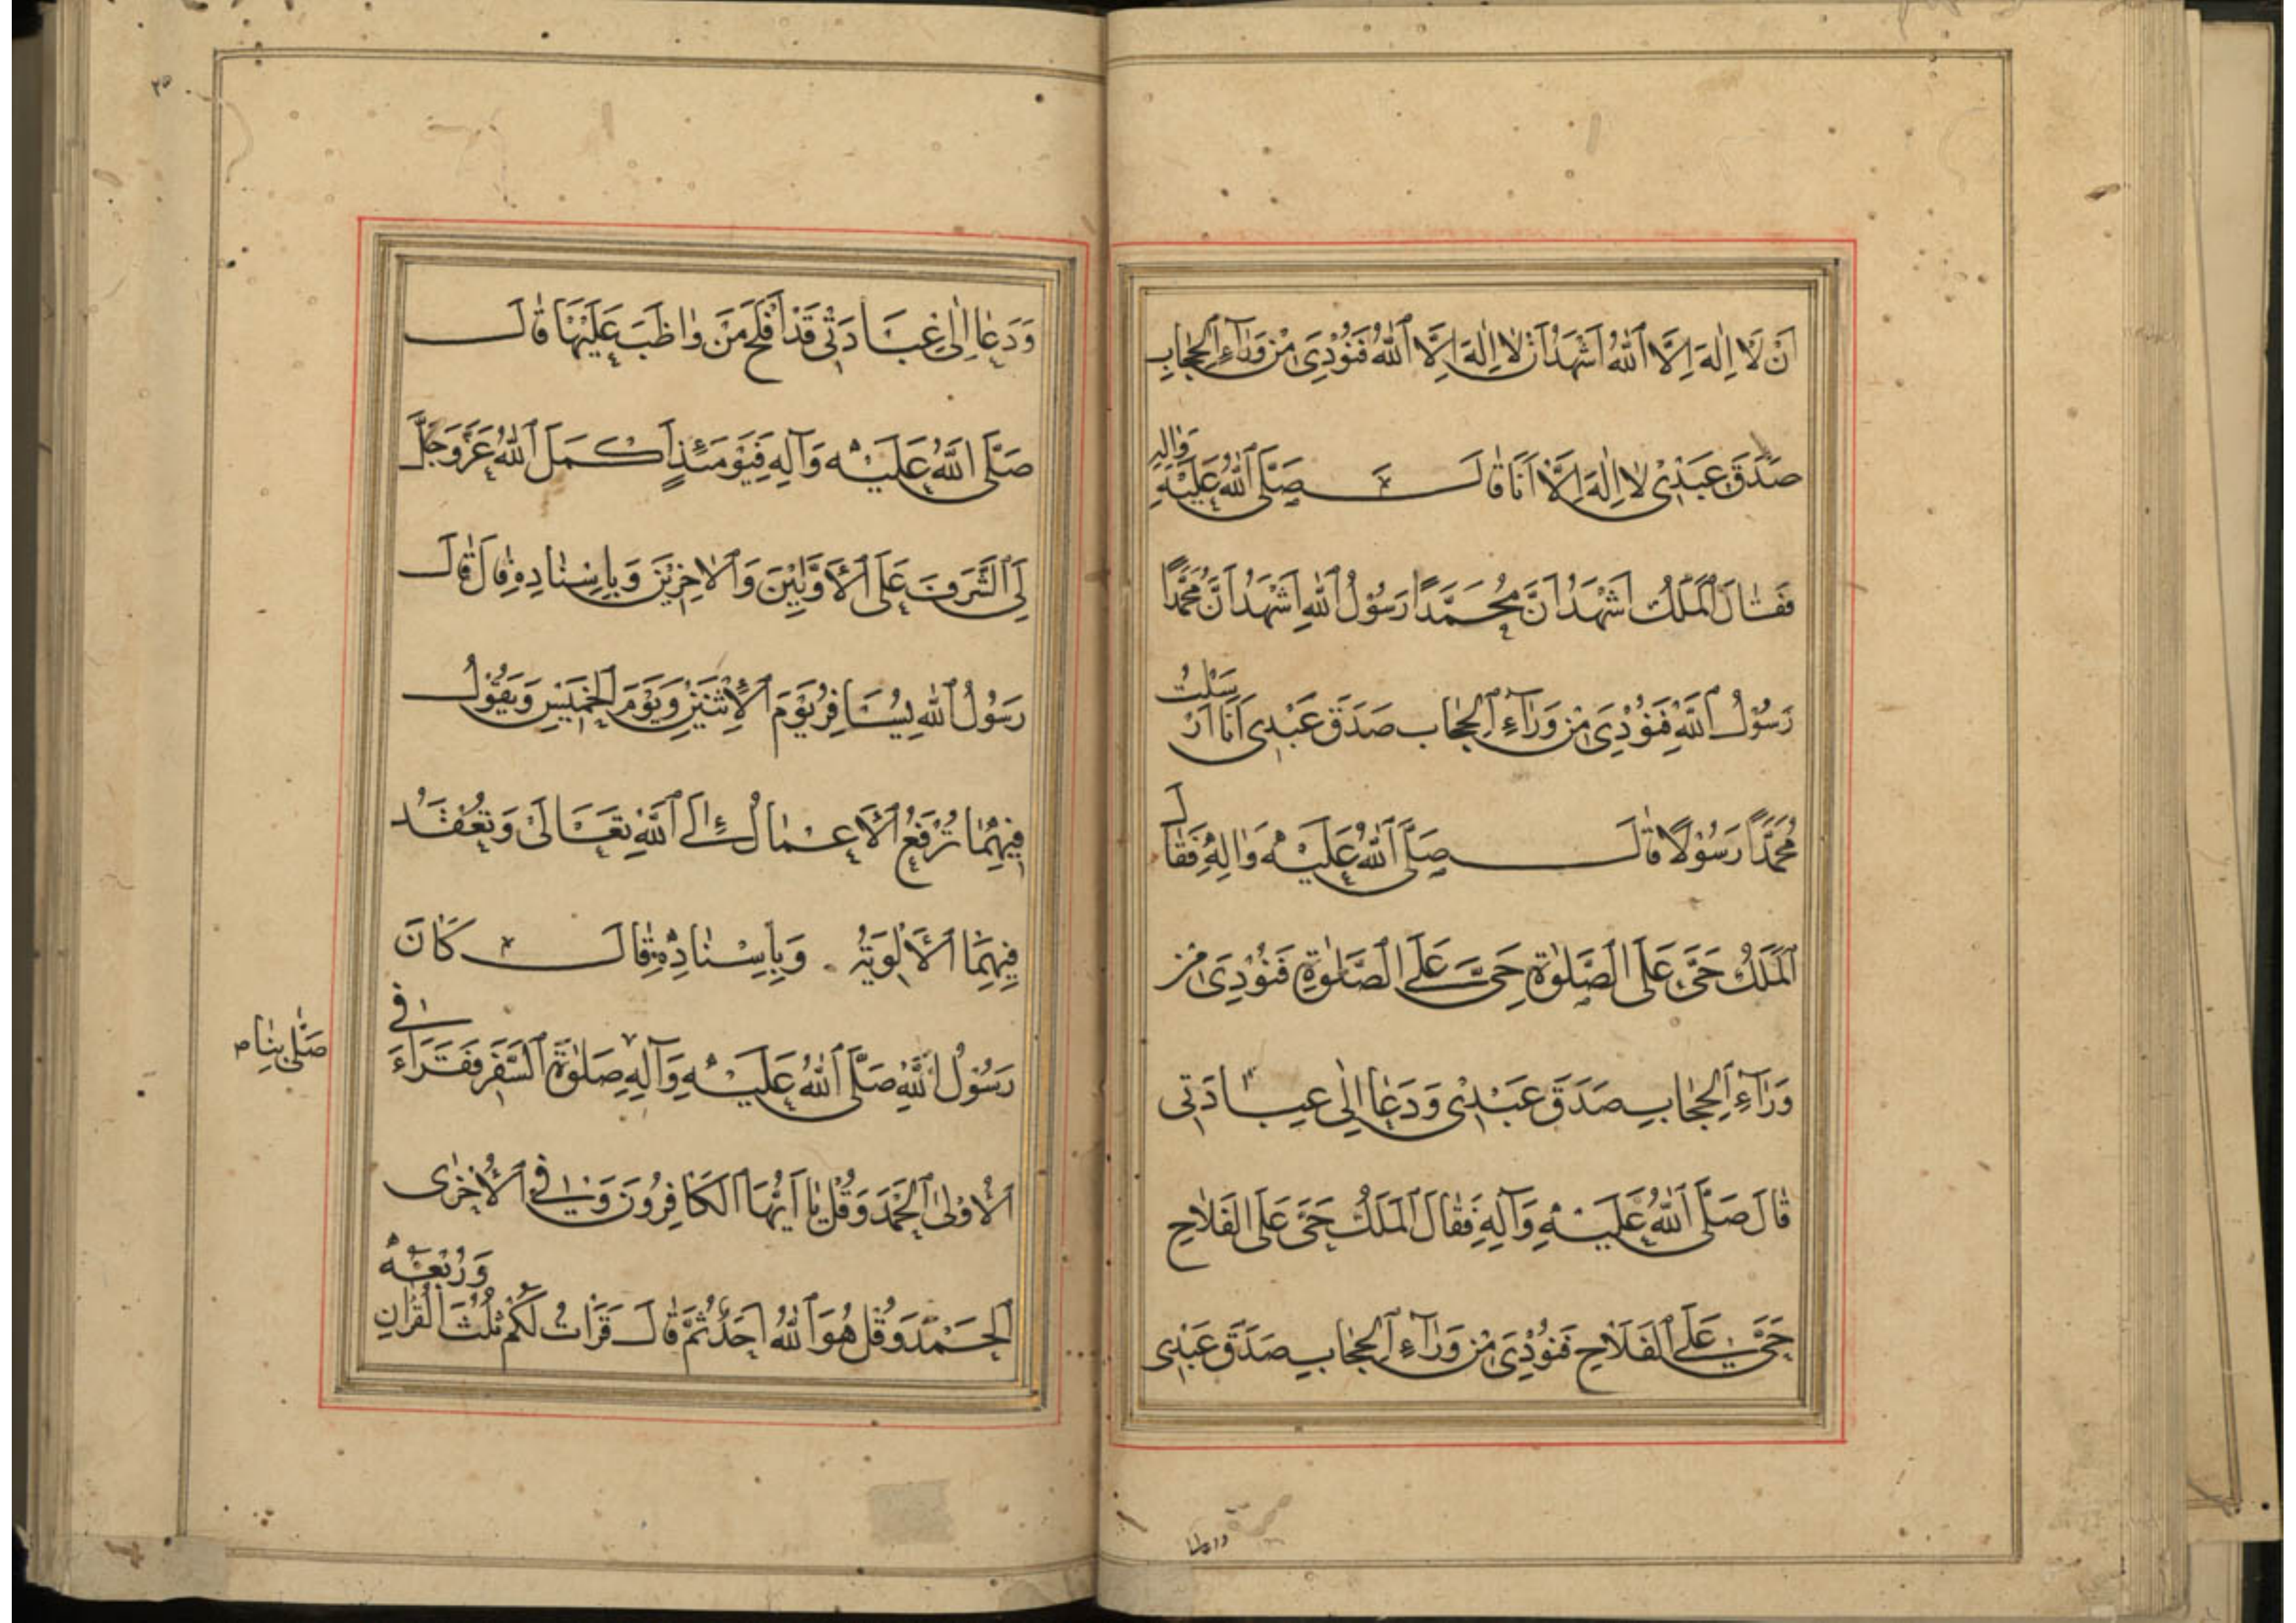 اَنْ لَا اِلٰهَ اِلَّا اللّٰهُ اَشْهَدُ اَنْ لَا اِلٰهَ اِلَّا اللّٰهُ فَنُوْدِىَ مِنْ وَرَآءِ الْحِجَابِ
صَدَقَ عَبْدِىْ لَا اِلٰهَ اِلَّا اَنَا قَالَ صَلَّى اللّٰهُ عَلَيْهِ وَاٰلِهِ
فَقَالَ الْمَلَكُ اَشْهَدُ اَنَّ مُحَمَّدًا رَسُوْلُ اللّٰهِ اَشْهَدُ اَنَّ مُحَمَّدًا
رَسُوْلُ اللّٰهِ فَنُوْدِىَ مِنْ وَرَآءِ الْحِجَابِ صَدَقَ عَبْدِى اَنَا اَرْسَلْتُ
مُحَمَّدًا رَسُوْلًا قَالَ صَلَّى اللّٰهُ عَلَيْهِ وَاٰلِهِ فَقَالَ
الْمَلَكُ حَىَّ عَلَى الصَّلٰوةِ حَىَّ عَلَى الصَّلٰوةِ فَنُوْدِىَ مِنْ
وَرَآءِ الْحِجَابِ صَدَقَ عَبْدِىْ وَدَعَا اِلٰى عِبَادَتِى
قَالَ صَلَّى اللّٰهُ عَلَيْهِ وَآلِهِ فَقَالَ الْمَلَكُ حَىَّ عَلَى الْفَلَاحِ
حَىَّ عَلَى الْفَلَاحِ فَنُوْدِىَ مِنْ وَرَآءِ الْحِجَابِ صَدَقَ عَبْدِى
وَدَعَا اِلٰى عِبَادَتِى قَدْ اَفْلَحَ مَنْ وَاظَبَ عَلَيْهَا قَالَ
صَلَّى اللّٰهُ عَلَيْهِ وَآلِهِ فَيَوْمَئِذٍ اَكْمَلَ اللّٰهُ عَزَّ وَجَلَّ
لِىَ الشَّرَفَ عَلَى الْاَوَّلِيْنَ وَالْاٰخِرِيْنَ وَبِاِسْنَادِهِ قَالَ قَالَ
رَسُوْلُ اللّٰهِ يُسَافِرُ يَوْمَ الْاِثْنَيْنِ وَيَوْمَ الْخَمِيْسِ وَيَقُوْلُ
فِيْهِمَا تُرْفَعُ الْاَعْمَالُ اِلَى اللّٰهِ تَعَالٰى وَتُعْقَدُ
فِيْهِمَا الْاَلْوِيَةُ وَبِاِسْنَادِهِ قَالَ كَانَ
رَسُوْلُ اللّٰهِ صَلَّى اللّٰهُ عَلَيْهِ وَآلِهِ صَلٰوةَ السَّفَرِ فَقَرَاَءَ فِى
صَلّٰى بِنَا
الْاُوْلٰى الْحَمْدَ وَقُلْ يَا اَيُّهَا الْكَافِرُوْنَ وَفِى الْاُخْرٰى
الْحَمْدَ وَقُلْ هُوَ اللّٰهُ اَحَدٌ ثُمَّ قَالَ قَرَاْتُ لَكُمْ ثُلُثَ الْقُرْاٰنِ وَرُبْعَهُ